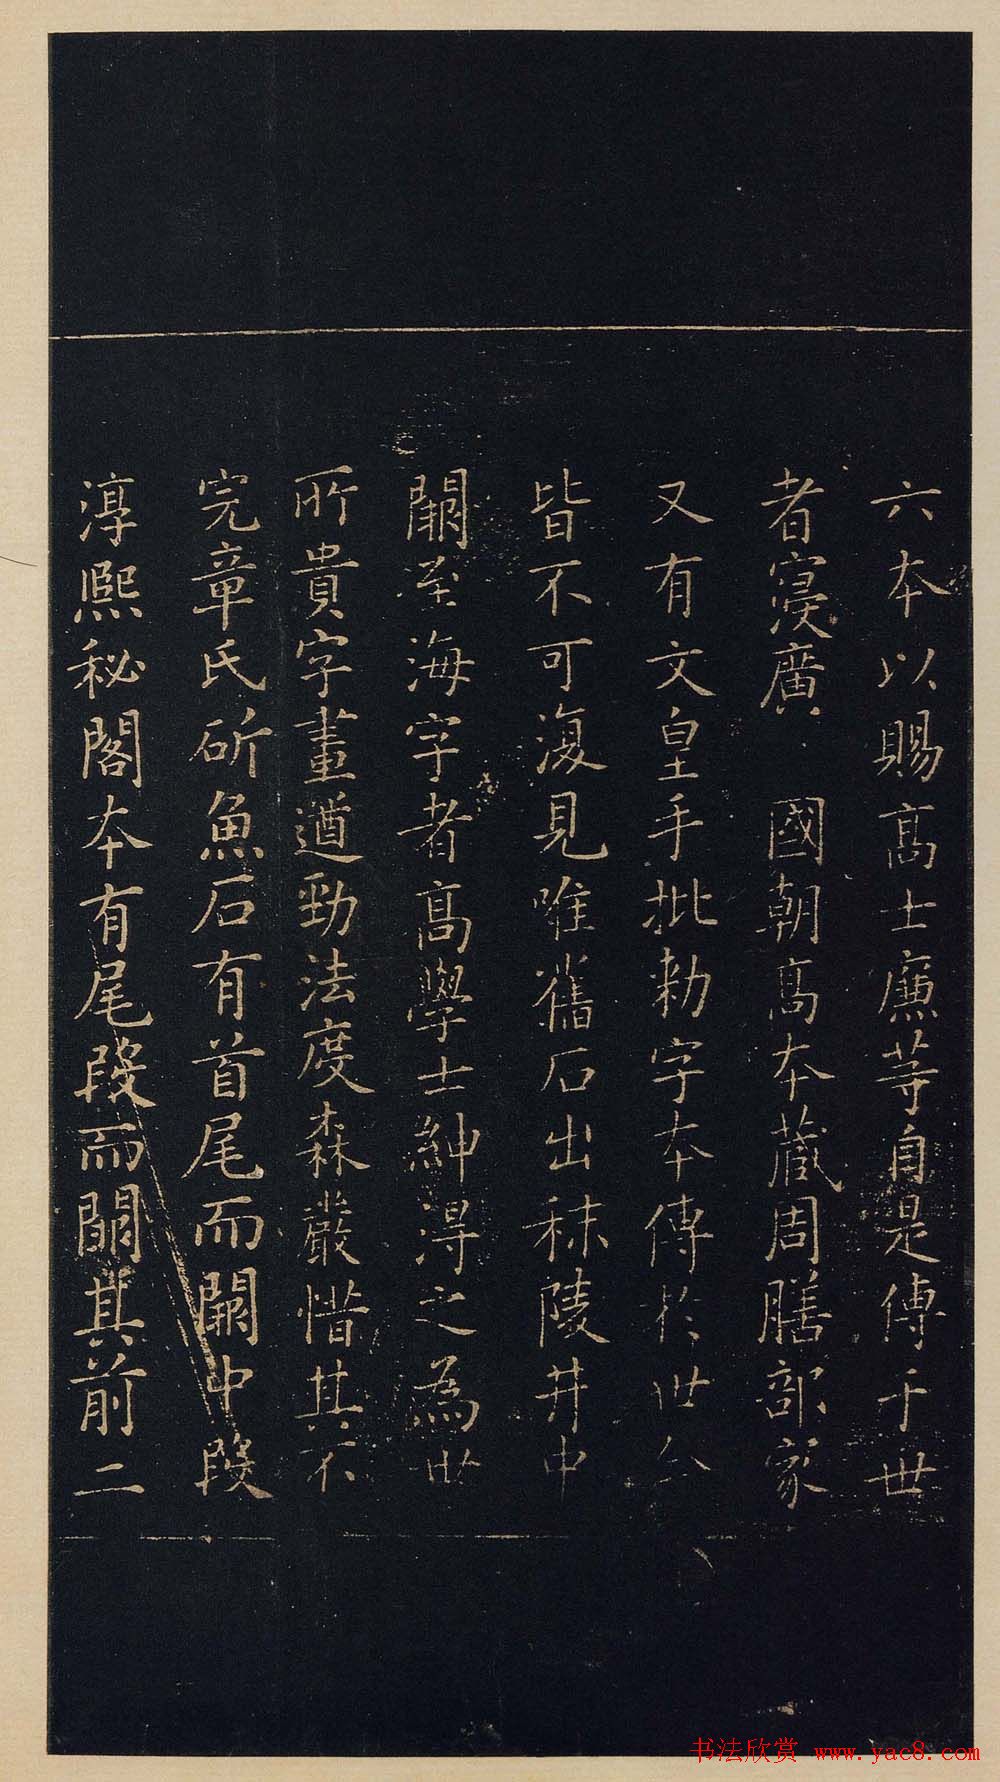 六本以賜高士廉等自是傳于世
者寖廣 國朝高本藏周膳部家
又有文皇手批勅字本傳於世今
皆不可復見唯舊石出秣陵井中
闕至海字者高學士紳得之為世
所貴字畫遒勁法度森嚴惜其不
完章氏斫魚石有首尾而闕中段
淳熙秘閣本有尾段而闕其前二
书法欣赏 www.yac8.com